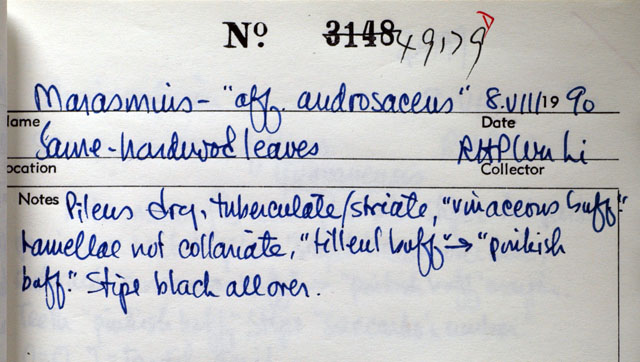 Nº 3148 49179
Marasmius - "aff. androsaceus" 8.VIII/19 90
lame Date
Same - hardwood leaves RHP
ocation Collector
Notes Pileus dry, tuberculate/striate, "vinaceous buff."
Lamellae not collariate, "tilleul buff" → "pinkish
buff." Stipe black all over.